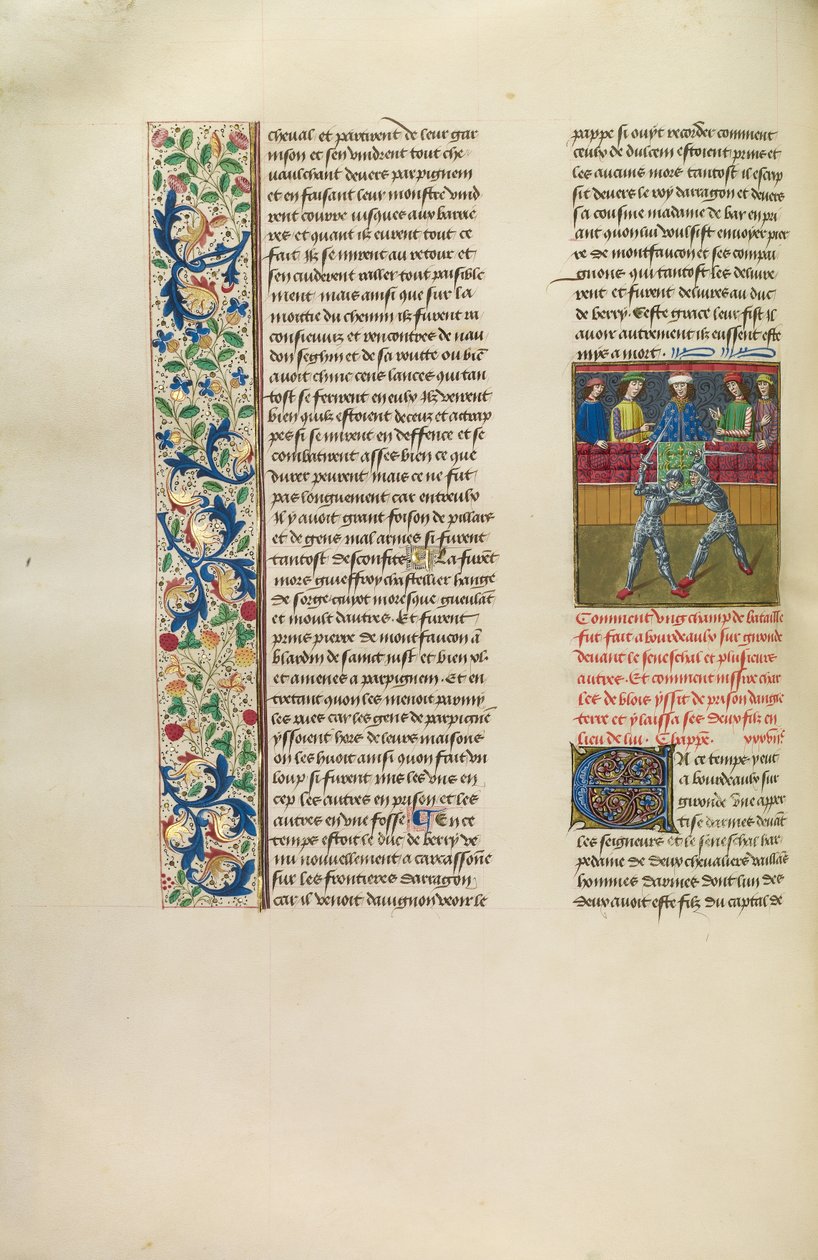 cheval et partirent de leur gar
nison et sen vindrent tout che
vaulchant devers parpignem
et en faisant leur monstre vind
rent courre iusques aux barrie
res et quant ilz eurent tout ce
fait ilz se mirent au retour et
sen cuiderent raller tout paisible
ment mais ainsi que sur la
moittie du chemin ilz furent ra
consieuuiz et rencontres de nau
don seghin et de sa routte ou bien
avoit chinc cens lances qui tan
tost se ferirent en eulx Ilz veirent
bien quilz estoient deceuz et attrap
pes si se mirent en deffence et se
combatirent asses bien ce que
durer peurent mais ce ne fut
pas longuement car entreulx
Il y avoit grant foison de pillars
et de gens mal armes si furent
tantost desconfits La furent
mors guieffroy chastellier hange
de sorge guyot moresque gueulant
et moult dautres. Et furent
prins pierre de montfaucon a
blardin de sainct iust et bien xl.
et amenes a parpignem. Et en
tretant quon les menoit parmy
les rues car les gens de parpignen
yssoient hors de leurs maisons
on les huoit ainsi quon fait un
loup si furent mis les uns en
cep les autres en prison et les
autres en une fosse En ce
temps estoit le duc de berry ve
nu nouvellement a carcassonne
sur les frontieres darragon
car il venoit davignon veoir le
pappe si ouyt recorder comment
ceulx de dulcem estoient prins et
les aucuns mors tantost il escrip
sit devers le roy darragon et devers
sa cousine madame de bar en pri
ant quon lui voulsist envoyer pier
re de montfaucon et ses compai
gnons qui tantost les delivre
rent et furent delivres au duc
de berry. Ceste grace leur fist il
avoir autrement ilz eussent este
mys a mort.
Comment ung champ de bataille
fut fait a bourdeaulx sur gironde
devant le seneschal et plusieurs
autres. Et comment messire char
les de blois yssit de prison dangle
terre et y laissa ses deux filz en
lieu de lui. Chappe.
En ce temps y eut
a bourdeaulx sur
gironde une apper
tise darmes devant
les seigneurs et le seneschal har
pedanne de deux chevaliers vaillans
hommes darmes dont lun des
deux avoit este filz du captal de